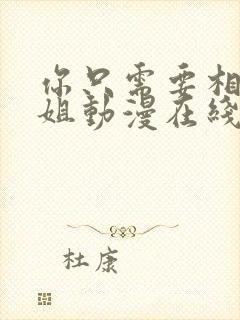 你只需要相
姐動漫在綫
杜康